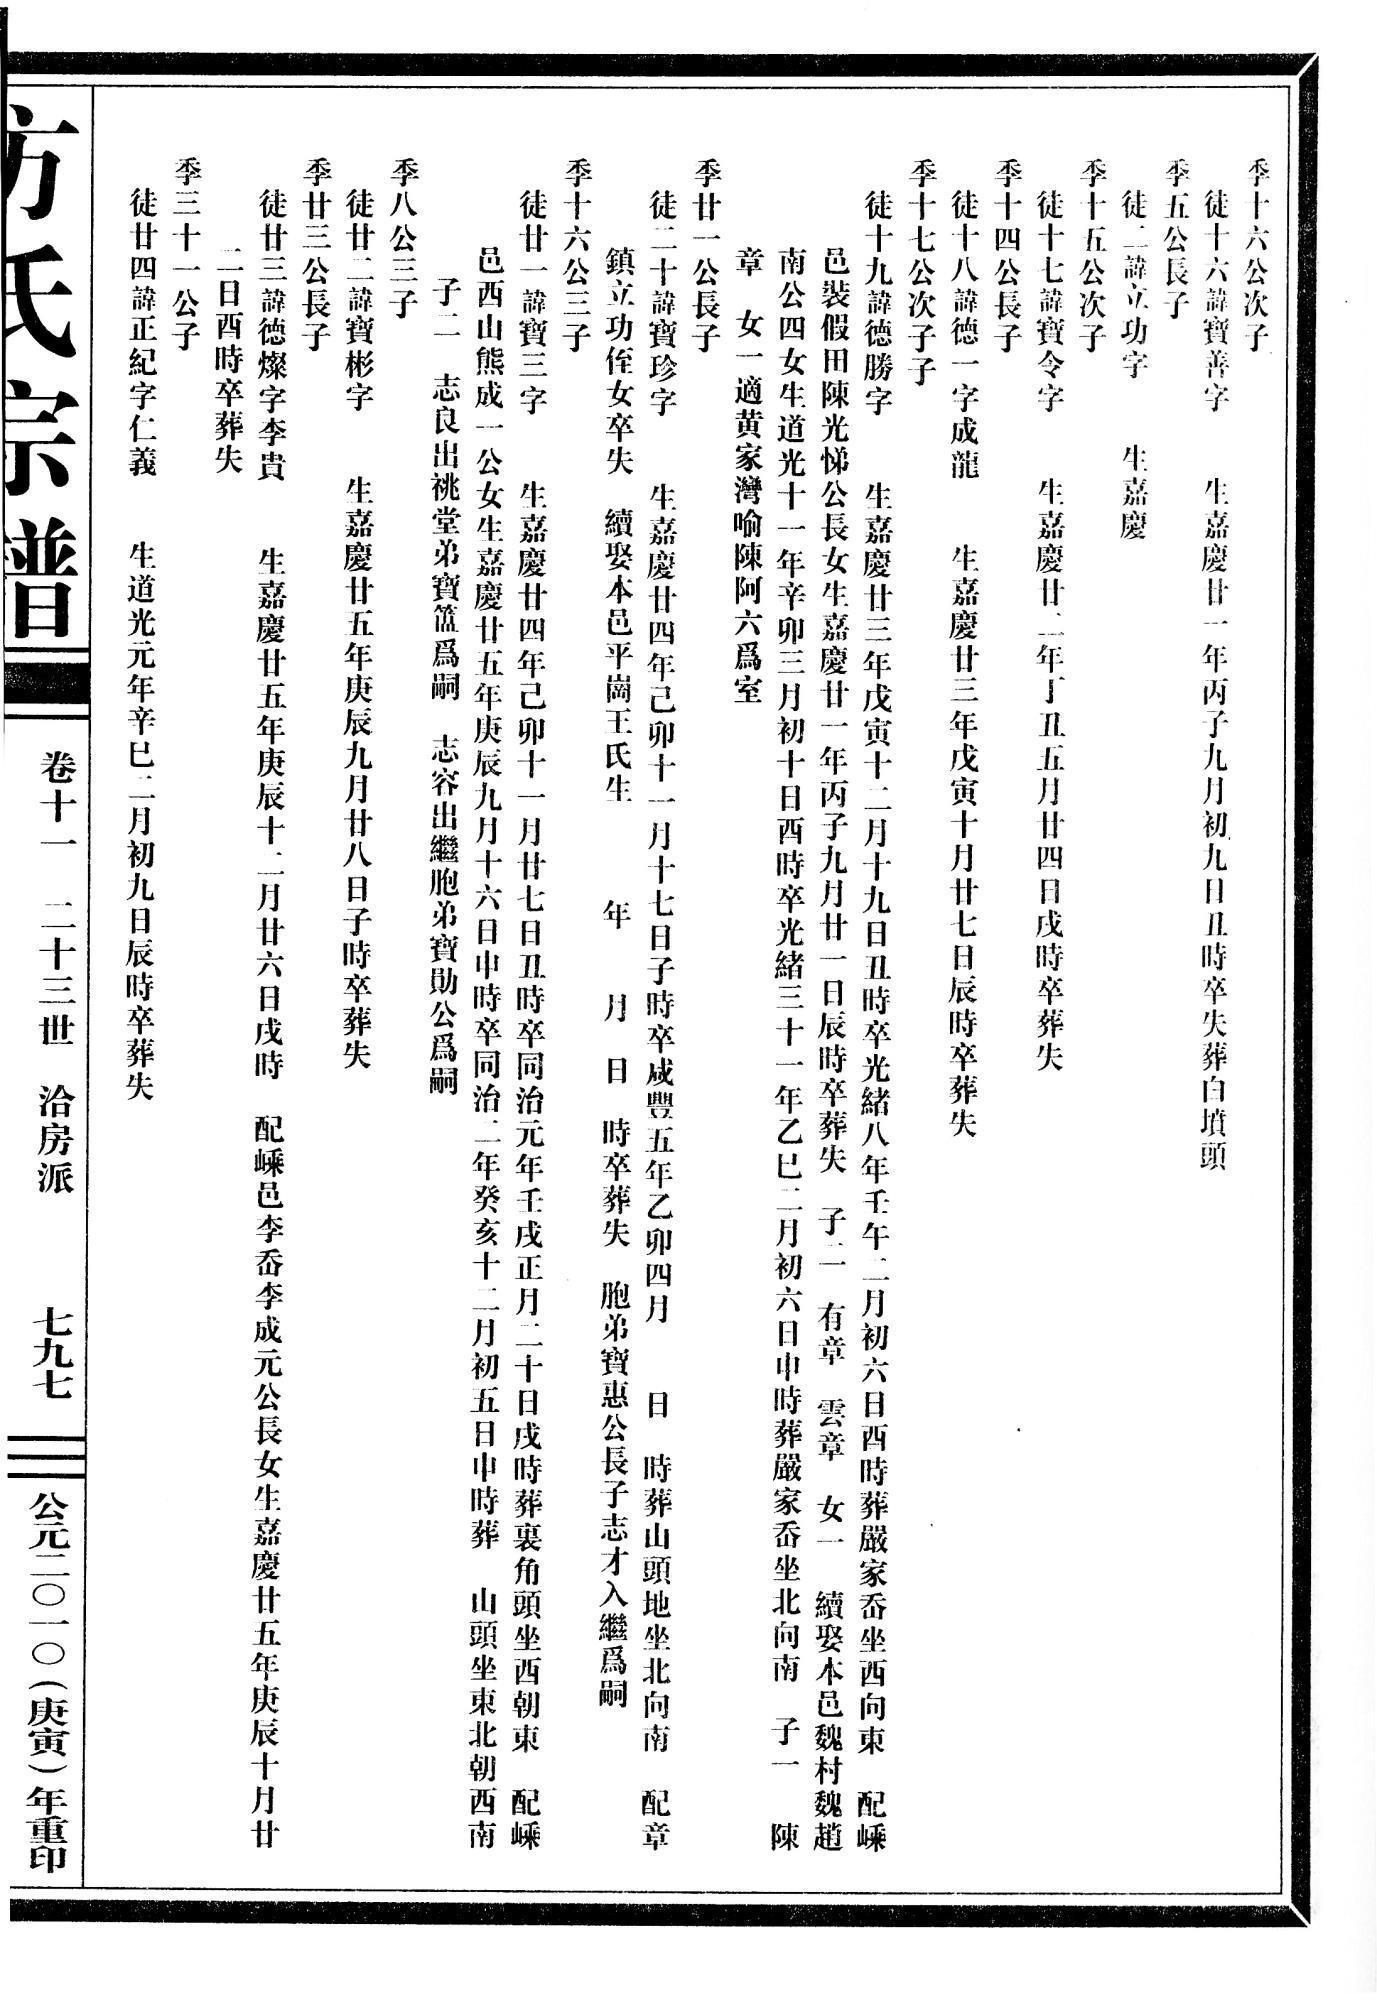 季十六公次子
徒十六諱寶善字　生嘉慶廿一年丙子九月初九日丑時卒失葬白墳頭
季五公長子
徒二諱立功字　生嘉慶
季十五公次子
徒十七諱寶令字　生嘉慶廿二年丁丑五月廿四日戌時卒葬失
季十四公長子
徒十八諱德一字成龍　生嘉慶廿三年戊寅十月廿七日辰時卒葬失
季十七公次子子
徒十九諱德勝字　生嘉慶廿三年戊寅十二月十九日丑時卒光緒八年壬午二月初六日酉時葬嚴家岙坐西向東　配嵊
邑裝假田陳光悌公長女生嘉慶廿一年丙子九月廿一日辰時卒葬失　子二　有章　雲章　女一　續娶本邑魏村魏趙
南公四女生道光十一年辛卯三月初十日酉時卒光緒三十一年乙巳二月初六日申時葬嚴家岙坐北向南　子一　陳
章　女一適黃家灣喻陳阿六爲室
季廿一公長子
徒二十諱寶珍字　生嘉慶廿四年己卯十一月十七日子時卒咸豐五年乙卯四月　日　時葬山頭地坐北向南　配章
鎮立功侄女卒失　續娶本邑平崗王氏生　年　月　日　時卒葬失　胞弟寶惠公長子志才入繼爲嗣
季十六公三子
徒廿一諱寶三字　生嘉慶廿四年己卯十一月廿七日丑時卒同治元年壬戌正月二十日戌時葬裏角頭坐西朝東　配嵊
邑西山熊成一公女生嘉慶廿五年庚辰九月十六日申時卒同治二年癸亥十二月初五日申時葬　山頭坐東北朝西南
子二　志良出祧堂弟寶籃爲嗣　志容出繼胞弟寶勛公爲嗣
季八公三子
徒廿二諱寶彬字　生嘉慶廿五年庚辰九月廿八日子時卒葬失
季廿三公長子
徒廿三諱德燦字李貴　生嘉慶廿五年庚辰十二月廿六日戌時　配嵊邑李岙李成元公長女生嘉慶廿五年庚辰十月廿
二日酉時卒葬失
季三十一公子
徒廿四諱正紀字仁義　生道光元年辛巳二月初九日辰時卒葬失
方氏宗譜
卷十一　二十三世　洽房派　七九七
公元二〇一〇（庚寅）年重印